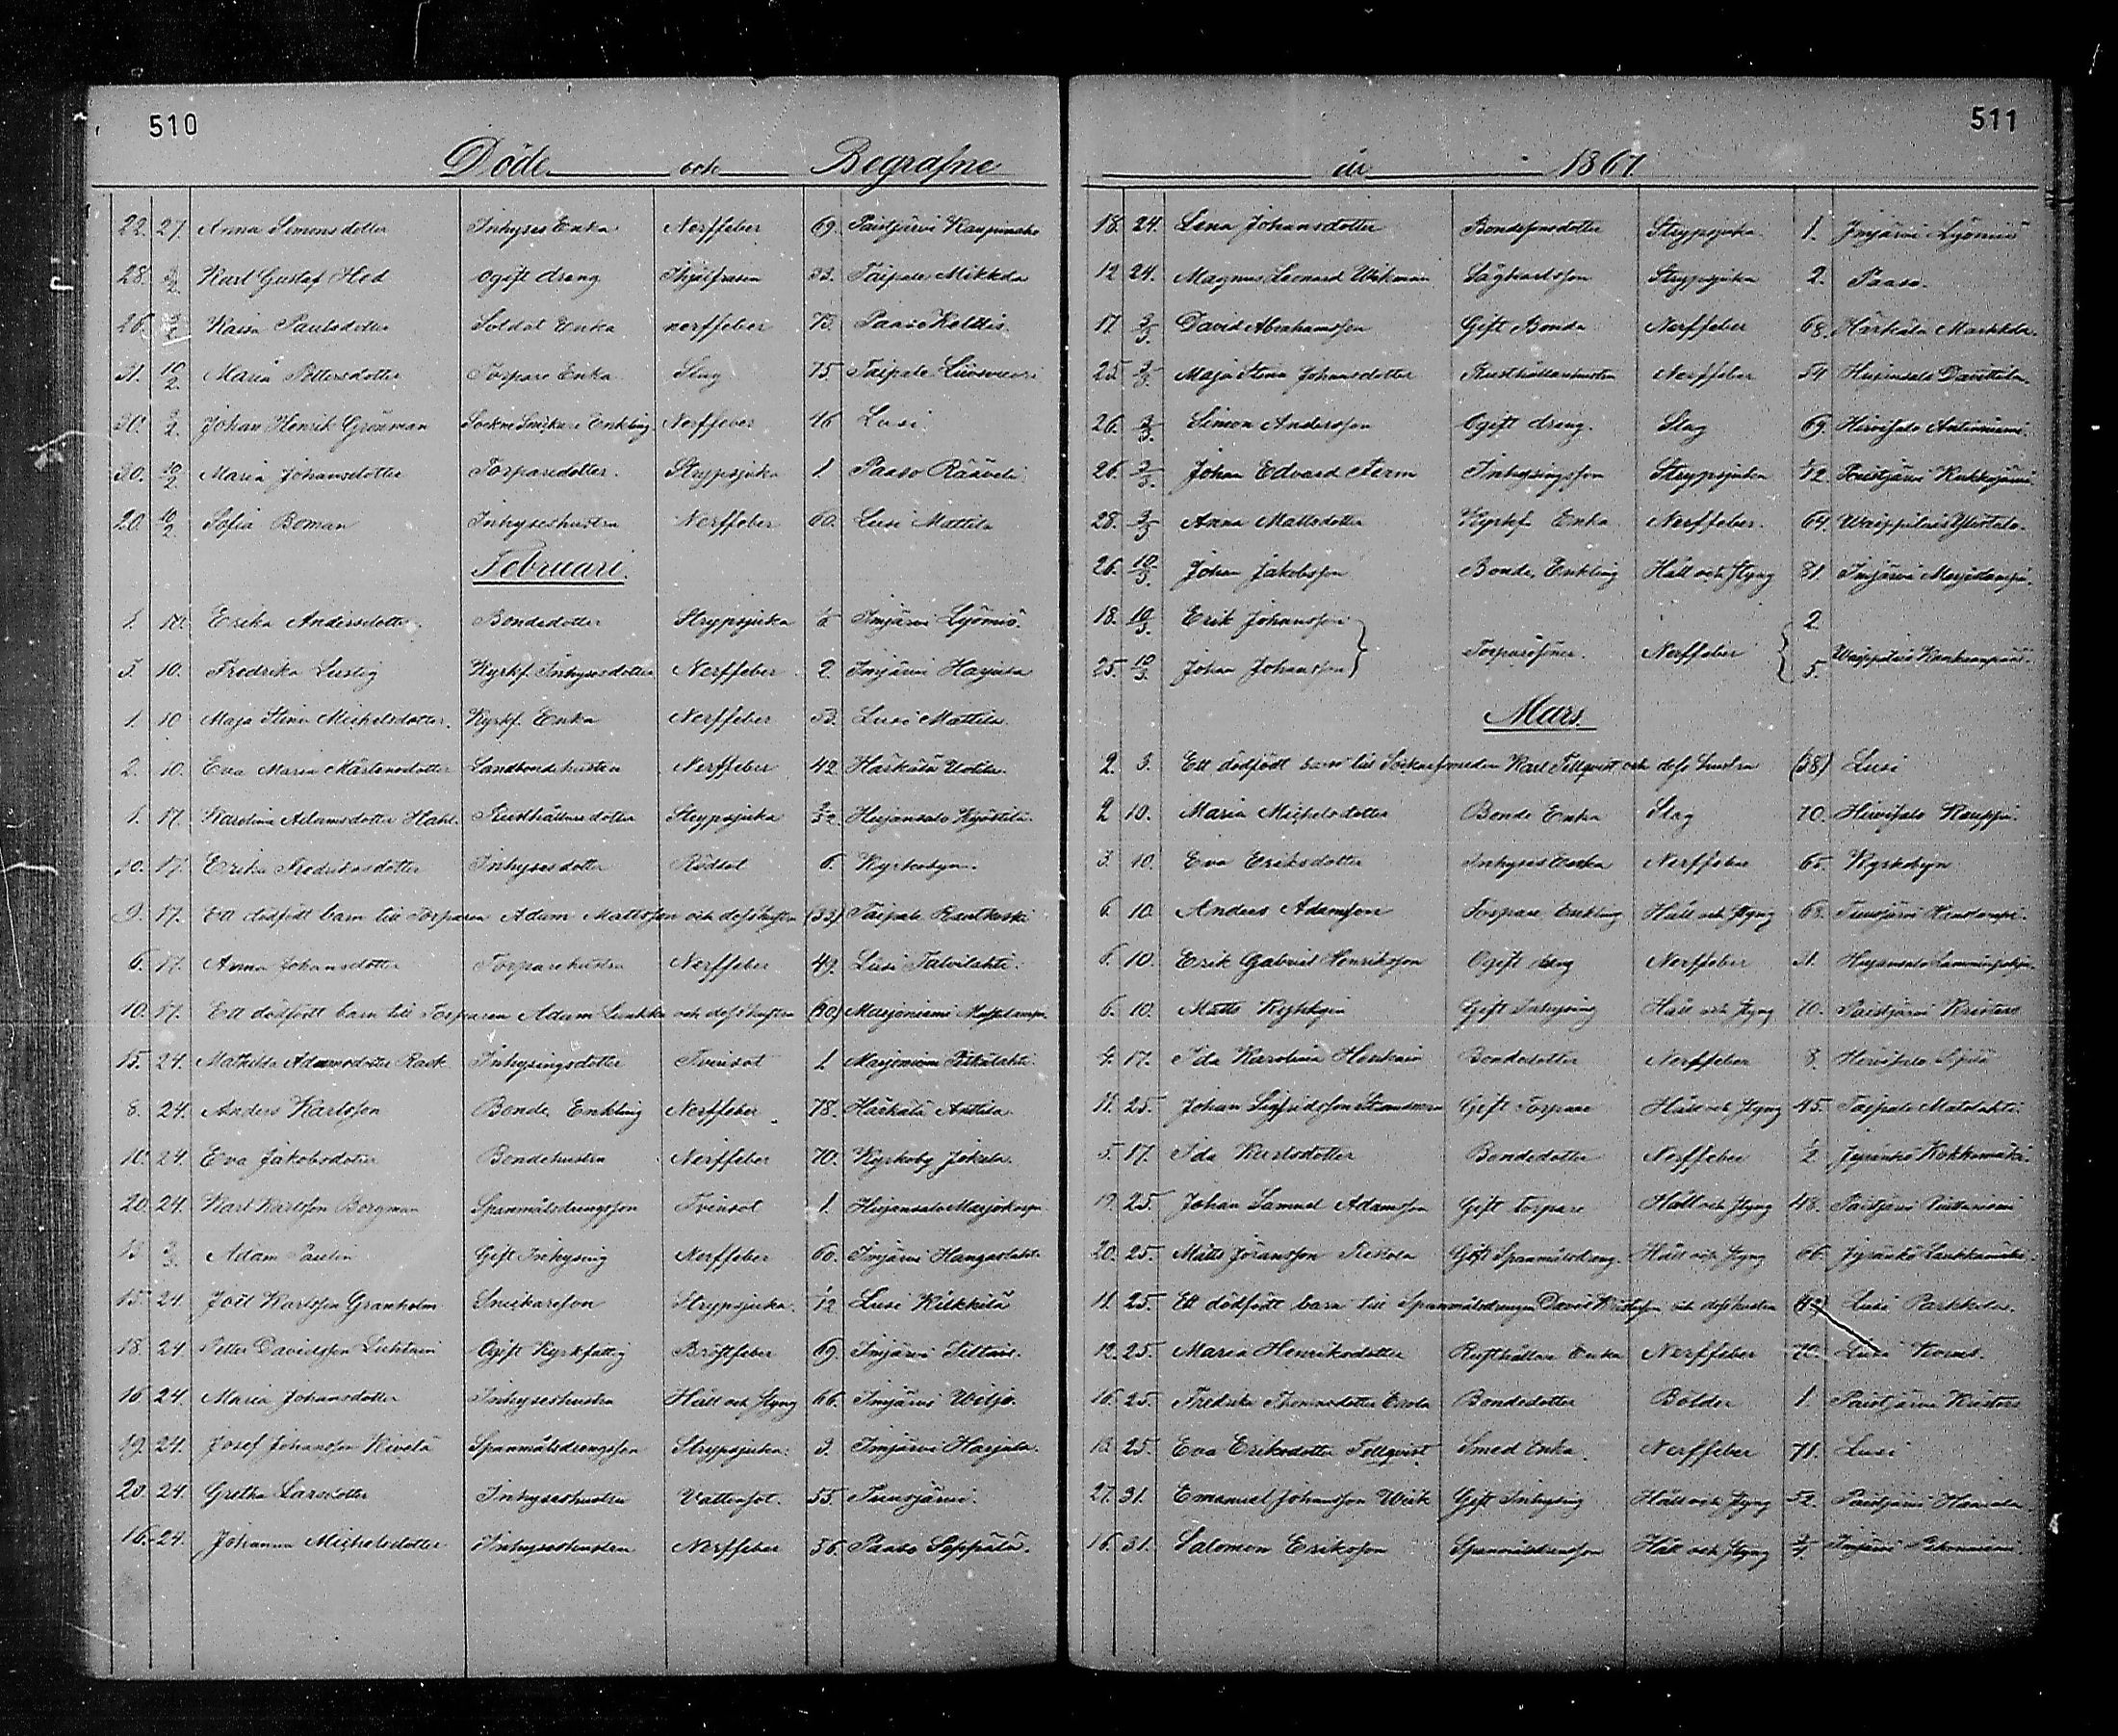 510
Döde och Begrafne
22. 27. Anna Simonsdotter Inhyses Enka Nerffeber 69. Paistjärvi Kauppinaho
28. 3/2 Karl Gustaf Hed ogift dräng 23. Taipale Mikkola
26. 3/2 Kaisa Paulsdotter Soldat Enka nerffeber 73. Paaso Keldtis.
31. 10/2 Maria Pettersdotter Torpare Enka Slag 75. Taipale
30. 3/2. Johan Henrik Grönman Sockne Snickare Enkling Nerffeber 46 Lusi.
30. 10/2 Maria Johansdotter Torparedotter. Strypsjuka 1. Paaso Rääveli
20. 10/2 Sofia Boman Inhyseshustru Nerffeber 60. Lusi Mattila
Februari.
1. 10. Erika Andersdotter. Bondedotter Strypsjuka 5 Imjärvi Lyömiö.
3. 10. Fredrika Lustig Kyrkf. Inhysesdotter Nerffeber. 2. Imjärvi Harjula
1. 10 Maja Stina Michelsdotter. Kyrkf. Enka Nerffeber 53. Lusi Mattila.
2. 10. Eva Maria Mårtensdotter Landbondehustru Nerffeber 42 Härkälä Uotila.
1. 17. Karolina Adamsdotter Hahl. Rusthållaredotter Strypsjuka Hujansalo Kyöstilä.
10. 17. Erika Fredriksdotter Inhysesdotter Rödsot 6. Kyrkobyn.
9. 17. Ett dödfödt barn till Torparen Adam Mattsson och dess hustru (33) Taipale Rautkoski
6. 17. Anna Johansdotter Torparehustru Nerffeber 49. Lusi Talvilahti.
10. 17. Ett dödfödt barn till Torparen Adam Luukka och dess hustru (30) Marjoniemi
15. 24. Mathilda Adamsdotter Rask Inhysingsdotter Tvinsot 1. Marjoniemi Pitkälahti
8. 24. Anders Karlsson Bonde Enkling Nerffeber 78. Härkälä Anttila
10. 24. Eva Jakobsdotter Bondehustru Nerffeber 70. Kyrkoby Jokela.
20. 24. Karl Karlsson Borgman Spanmålsdrängsson Tvinsot 1. Hujansalo
13 3/3. Adam Paulin Gift Inhysing Nerffeber 60. Imjärvi Hangaslahti
15. 24. Joel Karlsson Granholm Snickareson Strypsjuka. 1/12 Lusi Kilkkilä
18. 24 Petter Davidsson Luhtain Ogift Kyrkfattig Bröstfeber 69. Imjärvi Seltais.
16 24. Maria Johansdotter Inhyseshustru Håll och Styng 66. Imjärvi Woljo.
19. 24. Josef Johansson Kivelä Spanmålsdrängsson Strypsjuka. 3. Imjärvi Harjula.
20. 24. Gretha Larsdotter Inhyseshustru Vattensot. 55. Tuusjärvi.
16. 24. Johanna Michelsdotter Inhyseshustru Nerffeber 36. Paaso Seppälä.
511
år 1867
18. 24. Lena Johansdotter Bondesonsdotter Strypsjuka. 1. Imjärvi Lyömiö
12 24. Magnus Leonard Wikman Strypsjuka 2. Paaso.
17. 3/3. David Abrahamsson Gift Bonde Nerffeber 68. Härkälä Markkola.
25 3/3. Maja Stina Johansdotter Rusthållarehustru Nerffeber 54 Hujansalo Danttila.
26. 3/3. Simon Andersson Ogift dräng. Slag 69. Hirvisalo Anttoniemi.
26. 3/3. Johan Edvard Sterm Inhysingsson Strypsjuka /12 Paistjärvi
28. 3/3 Anna Mattsdotter Kyrkf. Enka Nerffeber. 64. Waippilais Ylöstalo.
26. 10/3. Johan Jakobsson Bonde, Enkling Håll och Styng 81. Imjärvi
18. 10/3. Erik Johansson 2
25. 10/3. Johan Johansson Torparesöner. Nerffeber 5. Waippilais
Mars.
2. 3. Ett dödfödt barn till Socknesmeden Karl Tellqvist och dess hustru (38) Lusi
2 10. Maria Michelsdotter Bonde Enka Slag 70. Hirvisalo Kauppi.
3. 10. Eva Eriksdotter Inhyses Enka Nerffeber 65. Kyrkobyn
6. 10. Anders Adamsson Torpare Enkling Håll och Styng 68. Tuusjärvi
6. 10. Erik Gabriel Henriksson Ogift dräng Nerffeber 31. Hujansalo
6. 10. Matts Gift Inhysing Håll och Styng 70. Paistjärvi Kristers
4. 17. Ida Karolina Bondedotter Nerffeber 8. Hirvisalo
11. 25. Johan Sigfridsson Gift Torpare Håll och Styng 45. Taipale Matolahti.
5. 17. Ida Karlsdotter Bondedotter Nerffeber 1/2 Jyränkö Kokkomäki.
19. 25. Johan Samuel Adamsson Gift Torpare Håll och Styng 48. Paistjärvi
20. 25. Matts Johansson Gift Spanmålsdräng. Håll och Styng 66. Jyränkö Laukkamäki.
11. 25. Ett dödfödt barn till Spanmålsdrängen David och dess hustru Lusi Parkkila.
12. 25. Maria Henriksdotter Rusthållare Enka Nerffeber 70. Lusi
16. 25. Fredrika Thomasdotter Bondedotter Bölder 1. Paistjärvi Kristers
13. 25. Eva Eriksdotter Tellqvist Smed Enka. Nerffeber 71. Lusi
27. 31. Emanuel Johansson Wiik Gift Inhysing Håll och Styng 52. Paistjärvi
16. 31. Salomon Eriksson Håll och Styng Imjärvi